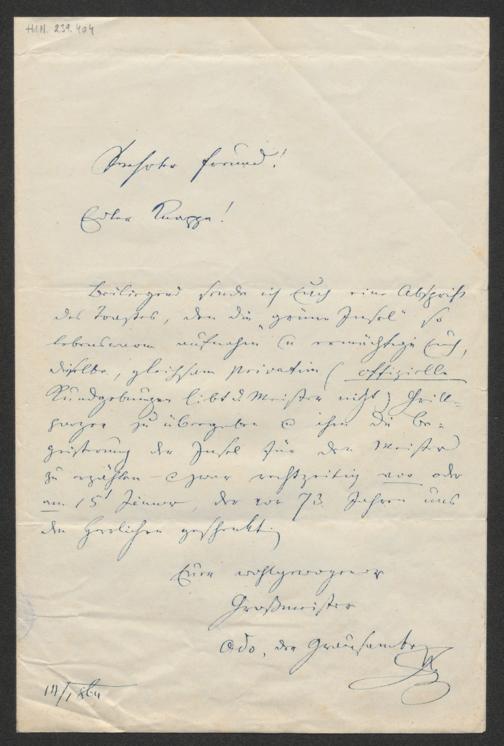 H.I.N. 239.404
Verehrter Freund!
Edler Knappe!
Beiliegend sende ich Euch eine Abschrift
des Toastes, den die "grüne Insel" so
lebenswarm aufnahm u ermächtige Euch,
dieselbe, gleichsam privatim (offizielle
Kundgebungen liebt d Meister nicht) Grill-
parzer zu übergeben u ihm die Be-
geisterung der Insel für den Meister
zu erzählen – u zwar rechtzeitig vor oder
am 15t Jänner, der vor 73 Jahren uns
den Herrlichen geschenkt.
Euer wohlgewogener
Großmeister
Odo, der Grausambe
14/1 864